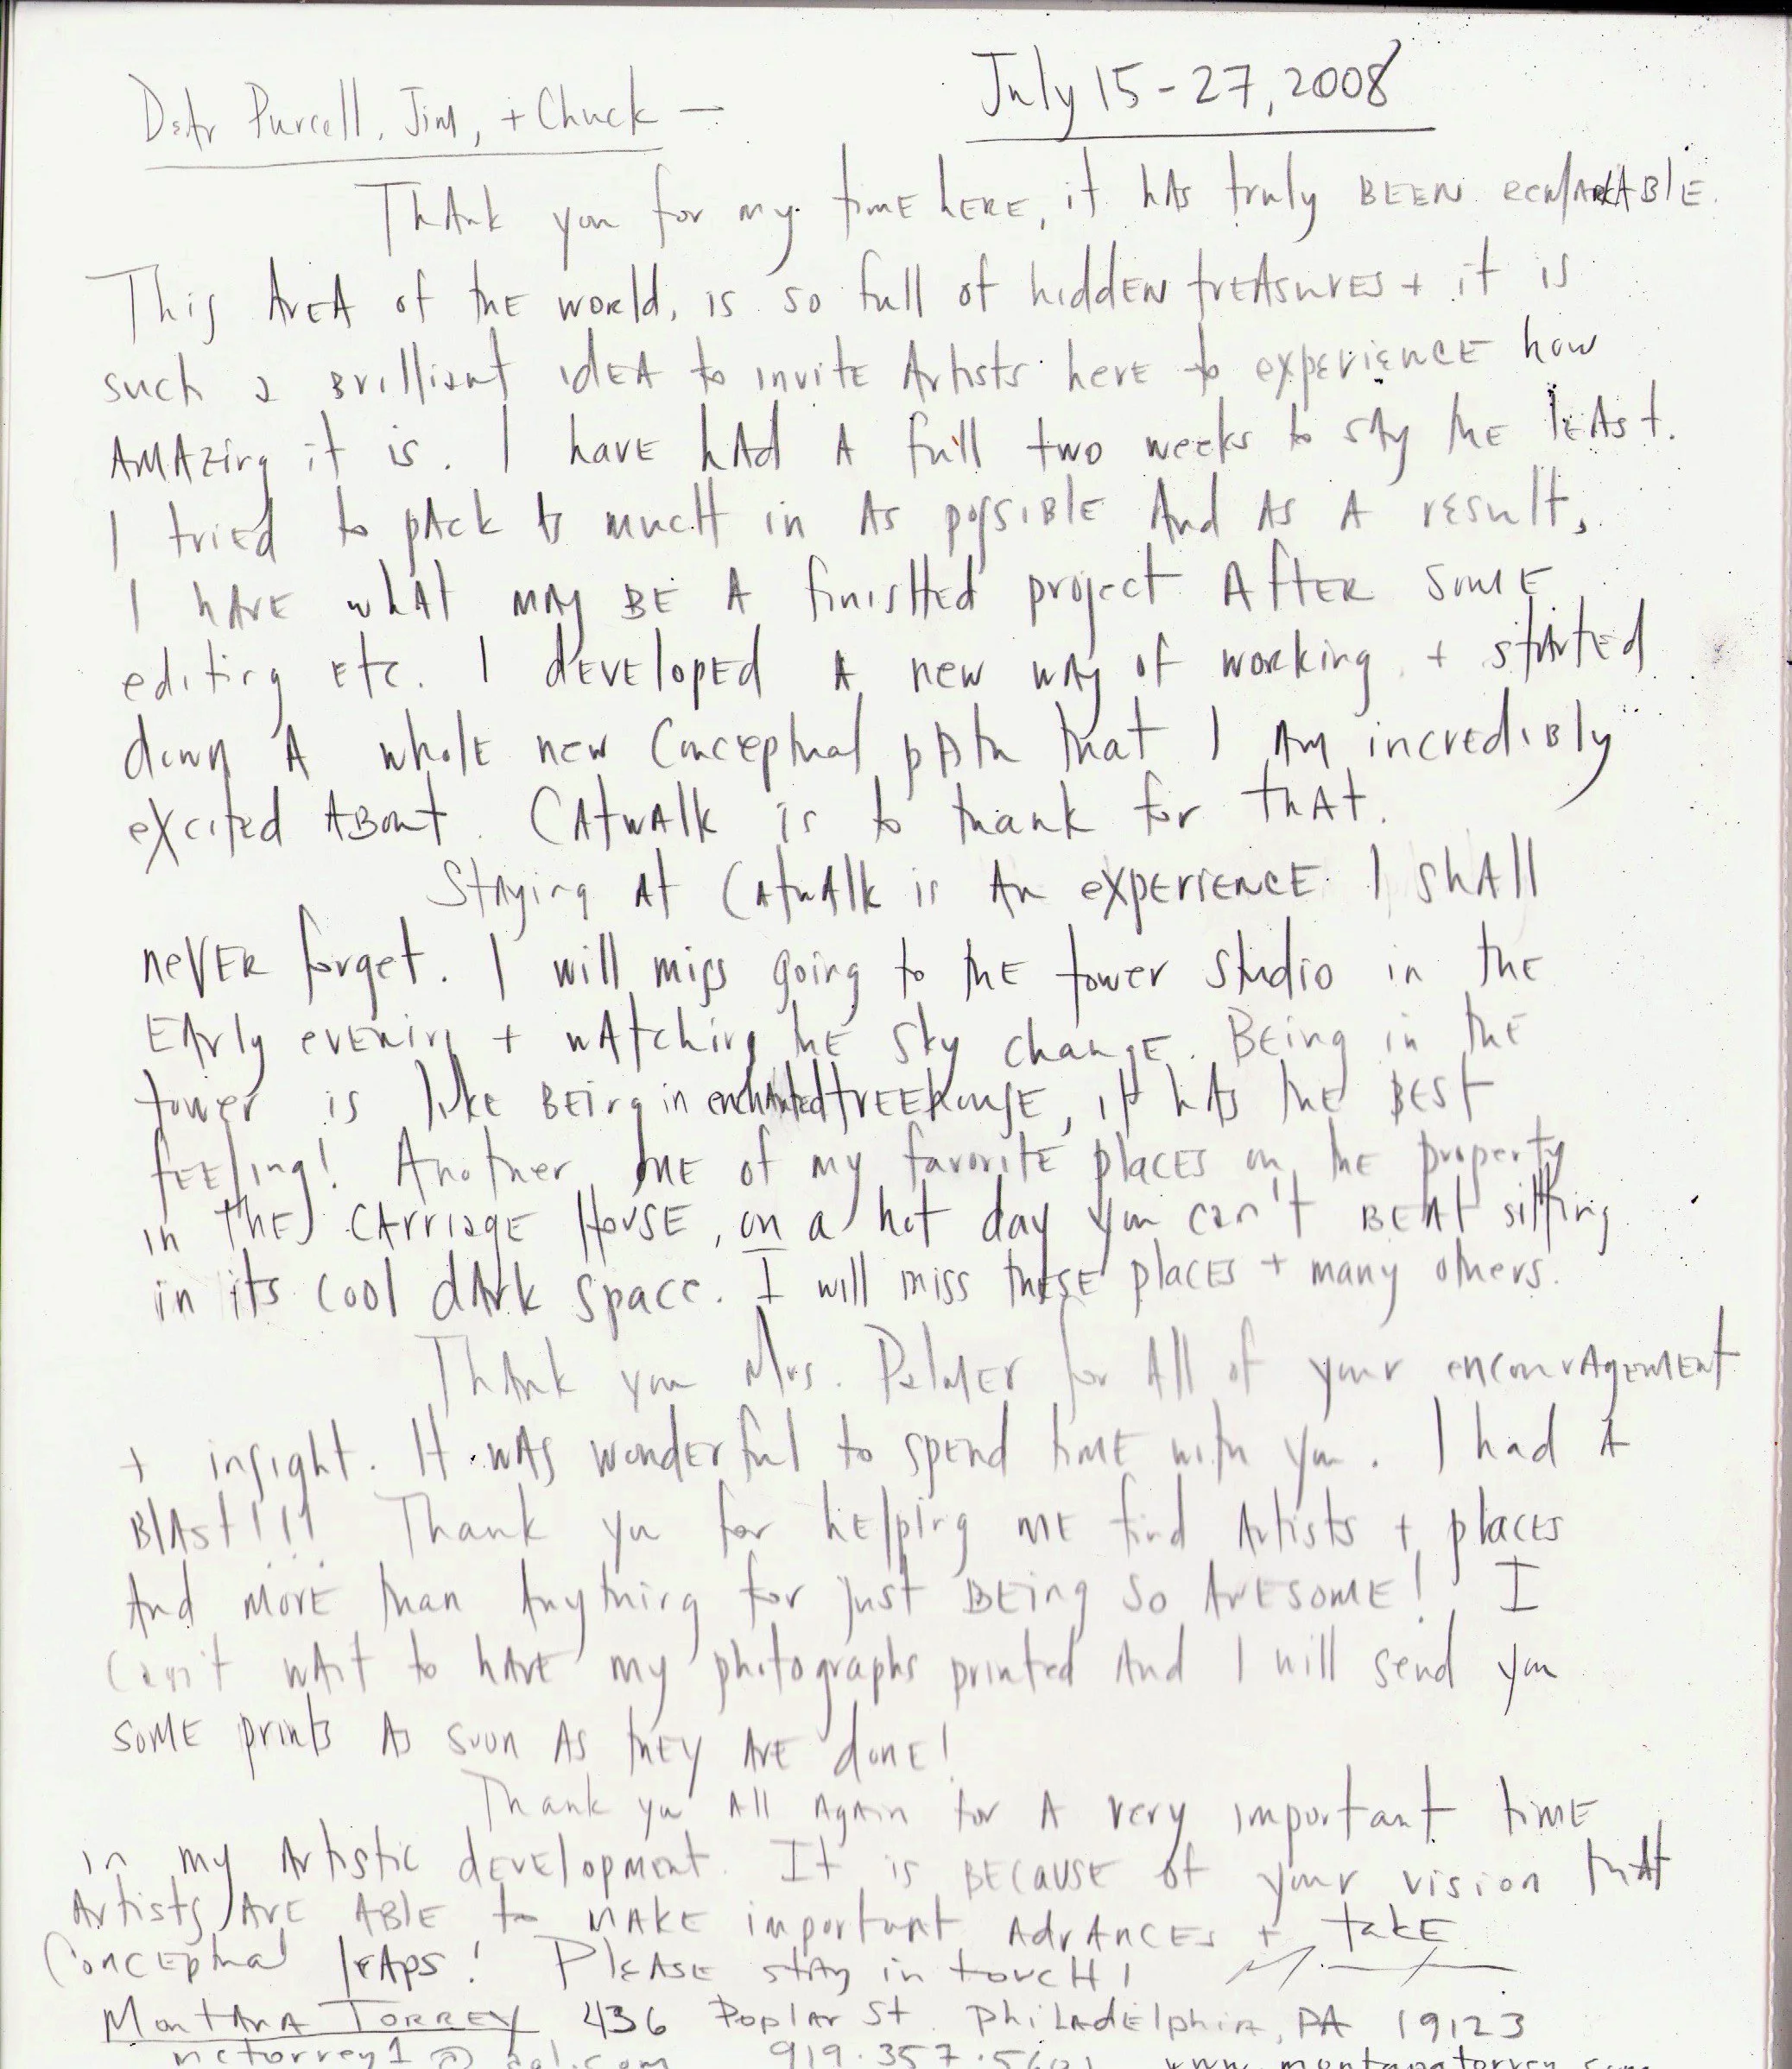 July 15-27, 2008
Dear Purcell, Jim, + Chuck —
Thank you for my time here, it has truly been remarkable.
This area of the world, is so full of hidden treasures + it is
such a brilliant idea to invite Artists here to experience how
amazing it is. I have had a full two weeks to say the least.
I tried to pack as much in as possible and as a result,
I have what may be a finished project after some
editing etc. I developed a new way of working + started
down a whole new conceptual path that I am incredibly
excited about. Catwalk is to thank for that.
Staying at Catwalk is an experience I shall
never forget. I will miss going to the tower studio in the
early evening + watching the sky change. Being in the
tower is like being in enchanted treehouse, it has the best
feeling! Another one of my favorite places on the property
in the carriage house, on a hot day you can't beat sitting
in its cool dark space. I will miss these places + many others.
Thank you Mrs. Palmer for all of your encouragement
+ insight. It was wonderful to spend time with you. I had a
Blast!!! Thank you for helping me find Artists + places
and more than anything for just being so awesome! I
can't wait to have my photographs printed and I will send you
some prints as soon as they are done!
Thank you all again for a very important time
in my artistic development. It is because of your vision that
Artists are able to make important advances + take
conceptual leaps! Please stay in touch!
Montana Torrey 436 Poplar St. Philadelphia, PA 19123
919.357. www.montanatorrey.com